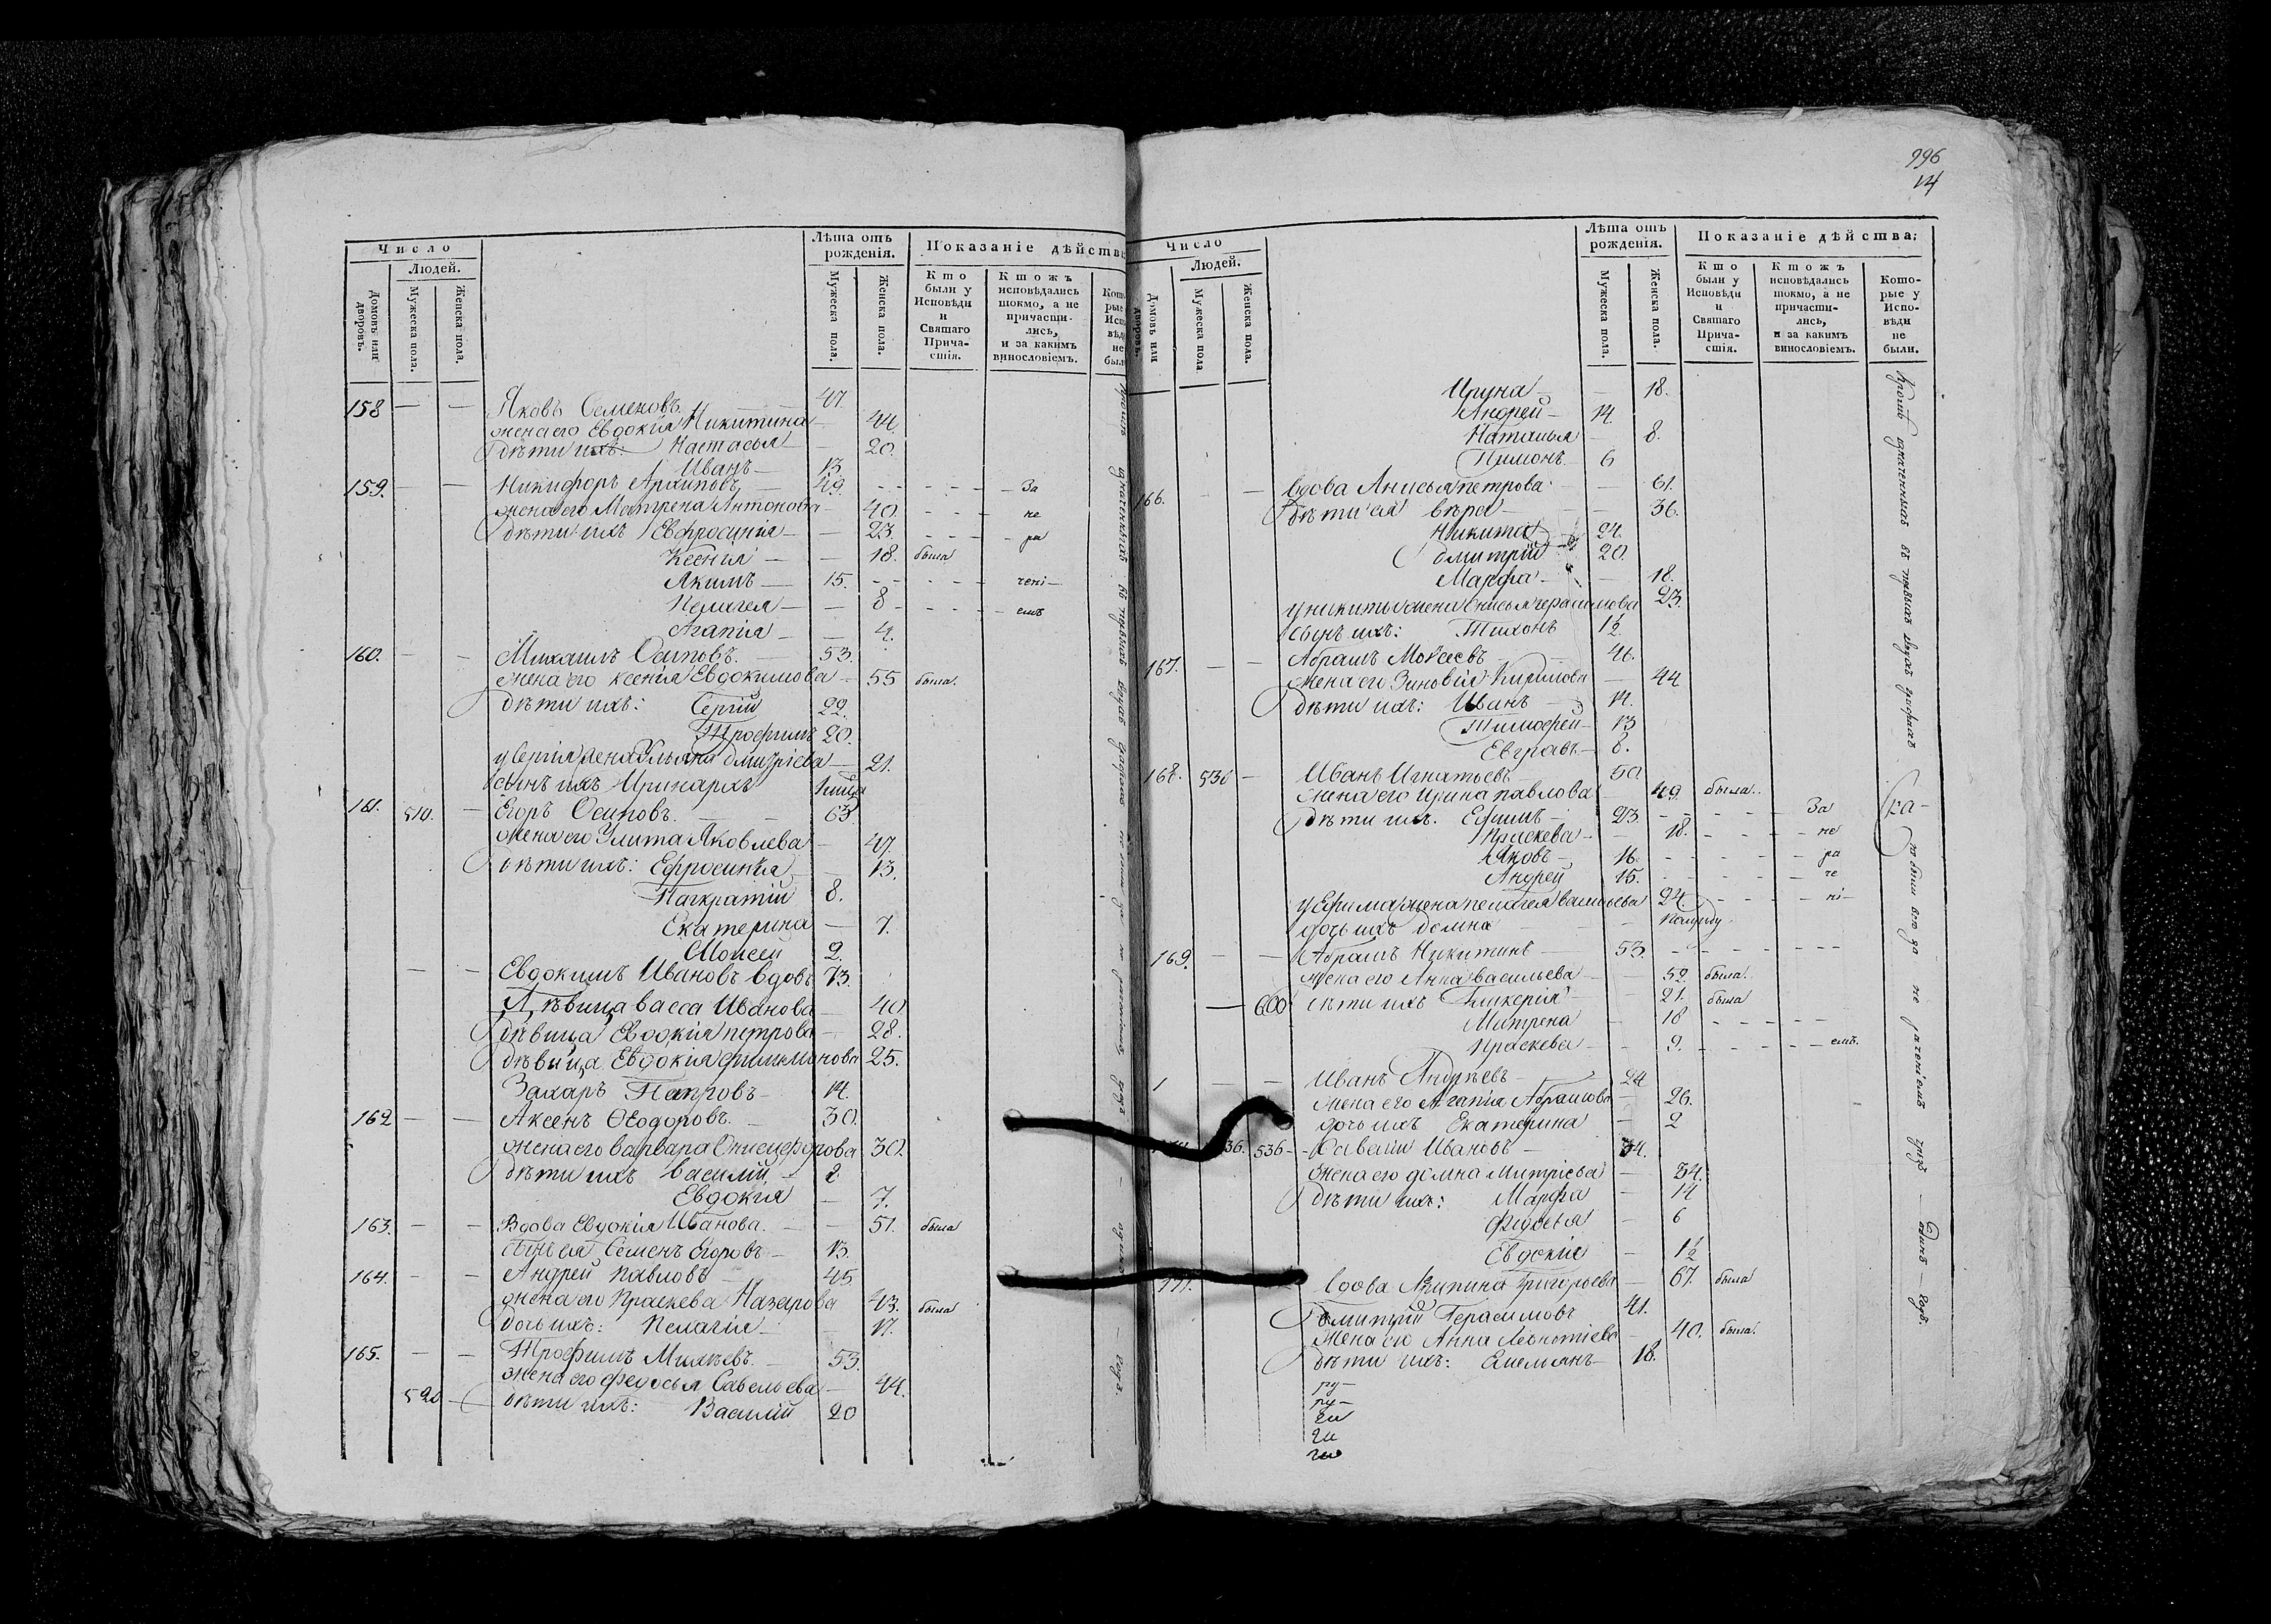 Число
Людей.
Домовъ или дворовъ.
Мужеска пола.
Женска пола.
Лѣта отъ рожденія.
Мужеска пола.
Женска пола.
Показаніе дѣйства
Кто были у Исповѣди и Святаго Прича-стія.
Ктожъ исповѣдались токмо, а не причасти-лись, и за какимъ винословіемъ.
158 — — Яковъ Семеновъ 47.
жена его Евдокія Никитина — 44.
дѣти ихъ: Настасья — — 20.
Иванъ — 13.
159. — — Никифоръ Архиповъ — 49. За
жена его Матрена Антонова — 40 не
дѣти ихъ Евфросинія — — 23. ра
Ксенія — — 18. была
Якимъ — 15. чені—
Пелагея — — 8 емъ
Агапія — — 4.
160. — — Михаилъ Осиповъ. — 53.
жена его Ксенія Евдокимова — 55 была.
дѣти ихъ: Сергій 22.
Трофимъ 20.
у Сергія жена Ульяна Дмитріева — 21.
сынъ ихъ Иринархъ
161. 510. — Егоръ Осиповъ. — 63
жена его Улита Яковлева — 47.
дѣти ихъ: Ефросинія — — 13.
Панкратій 8.
Екатерина — 7.
Моисей 2.
— — Евдокимъ Ивановъ вдовъ 73.
Дѣвица Васса Иванова — 40
дѣвица Евдокія Петрова — 28.
дѣвица Евдокія Филимонова 25.
Захаръ Петровъ — 14.
162 — — Аксенъ Ѳеодоровъ. — 30.
жена его Варвара Онисифорова 30.
дѣти ихъ Василій — 8
Евдокія — 7.
163. — — Вдова Евдокія Иванова. — — 51. была
сынъ ея Семенъ Егоровъ — 13.
164. — — Андрей Павловъ — 45
жена его Праскева Назарова 43. была
дочь ихъ: Пелагія — — 17.
165. — — Трофимъ Михѣевъ. — 53.
жена его Федосья Савельева — 44.
520 — дѣти ихъ: Василій 20
996
14
Число
Людей.
Домовъ или дворовъ.
Мужеска пола
Женска пола.
Лѣта отъ рожденія.
Мужеска пола.
Женска пола.
Показаніе дѣйства;
Кто были у Исповѣди и Святаго Прича-стія.
Ктожъ исповѣдались токмо, а не причасти-лись, и за какимъ винословіемъ.
Кото-рые у Испо-вѣди не были.
Ирина — — 18.
Андрей — 14.
Наталья — 8.
Пимонъ 6
166. — — Вдова Анисья Петрова — — 61.
дѣти ея Вѣра — — 36.
Никита 24.
Дмитрій 20.
Марфа — — 18.
у Никиты жена Анисья Герасимова 23.
сынъ ихъ: Тихонъ 1½
167. — — Абрамъ Моѵсеевъ 46.
жена его Зиновія Кирилова — 44
дѣти ихъ: Иванъ — 14.
Тимофей — 13
Евграфъ — 8.
168. 530 — Иванъ Игнатьевъ — 50
жена его Ирина Павлова 49. была.
дѣти ихъ. Ефимъ — 23. За
Праскева — — 18. не
Яковъ — 16. ра
Андрей 15. че
у Ефима жена Пелагея Васильева 24. ні—
дочь ихъ Домна — —
169. — — Абрамъ Никитинъ — 53.
жена его Анна Васильева — — 52. была.
— 600 дѣти ихъ Гликерія — — 21. была
Матрена — 18
Праскева — — 9. емъ.
1 — — Иванъ Андреевъ — 24
жена его Агапія Абрамова — 26.
дочь ихъ Екатерина — 2
36. 536 — Савелій Ивановъ — 34.
жена его Домна Митріева — 34.
дѣти ихъ: Марфа — 14
Федосья — 6
Евдокія — 1½
171. Вдова Акилина Григорьева — 67. была
Дмитрій Герасимовъ 41.
жена его Анна Леонтіева — 40. была.
дѣти ихъ: Емельянъ — 18.
ру—
ру—